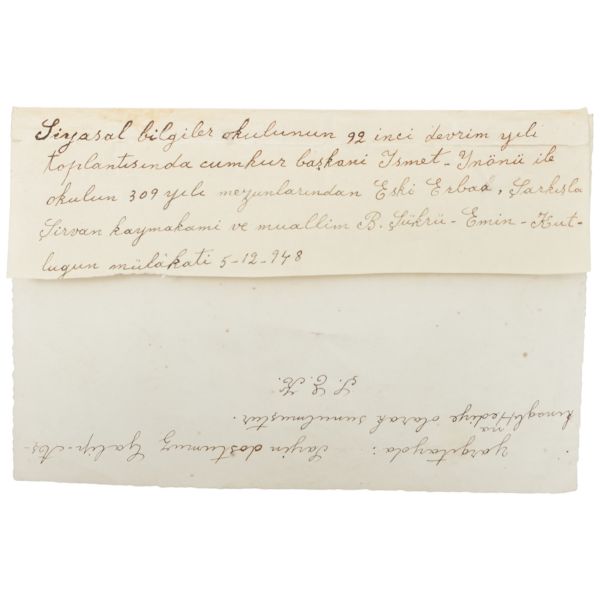 Siyasal bilgiler okulunun 92 inci devrim yılı
toplantısında cumhur başkanı İsmet-İnönü ile
okulun 309 yılı mezunlarından Eski Erbaa, Şarkışla
Şirvan kaymakamı ve muallim B. Şükrü-Emin-Kut-
lugun mülâkatı 5-12-948
Yargıtayda: Sayın dostumuz Galip-
na hediye olarak sunulmuştur.
Ş. E. K.